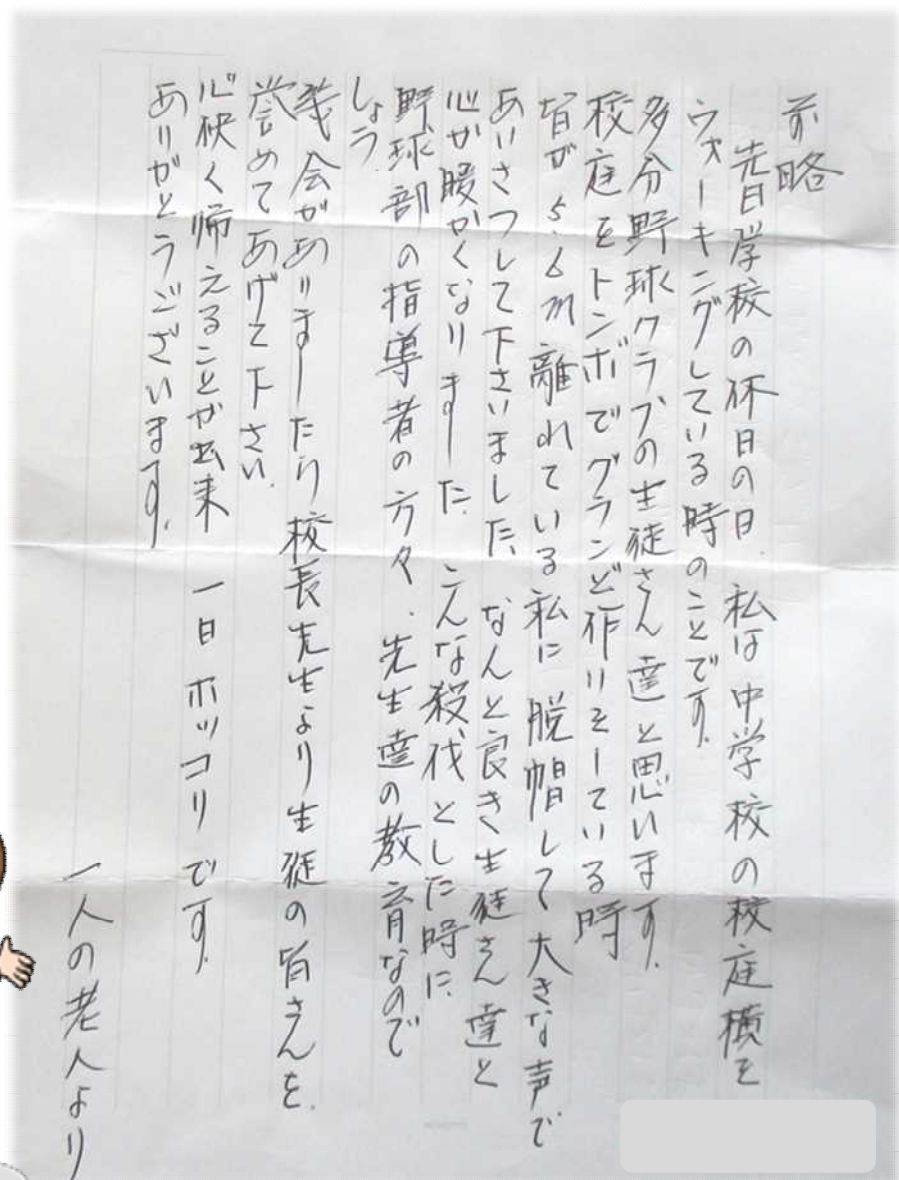 前略
先日学校の休日の日、私は中学校の校庭横を
ウォーキングしている時のことです。
多分野球クラブの生徒さん達と思います。
校庭をトンボでグランド作りをしている時
皆が5.6m離れている私に脱帽して大きな声で
あいさつして下さいました。なんと良き生徒さん達と
心が暖かくなりました。こんな殺伐とした時に
野球部の指導者の方々、先生達の教育なので
しょう
機会がありましたら校長先生より生徒の皆さんを、
誉めてあげて下さい、
心快く帰えることが出来 一日ホッコリです。
ありがとうございます。
一人の老人より